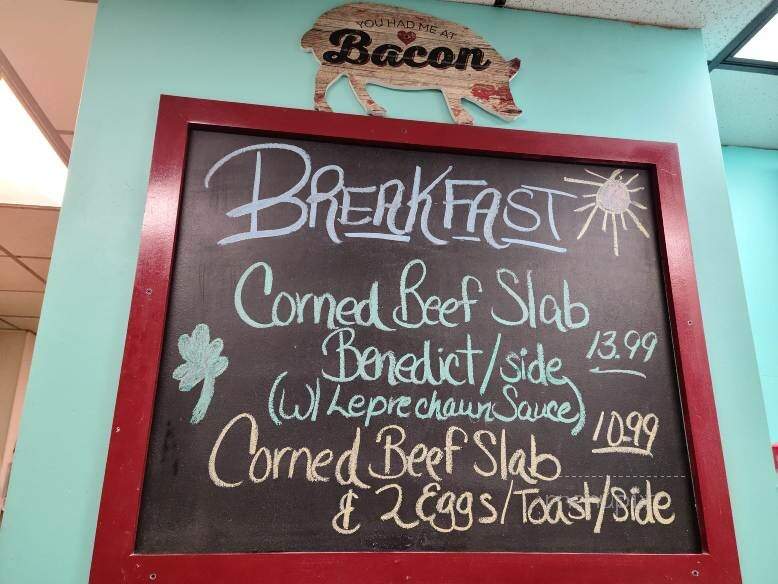 YOU HAD ME AT
Bacon
BREAKFAST
Corned Beef Slab
Benedict/side 13.99
(W/ Leprechaun Sauce)
Corned Beef Slab 10.99
& 2 Eggs/Toast/Side